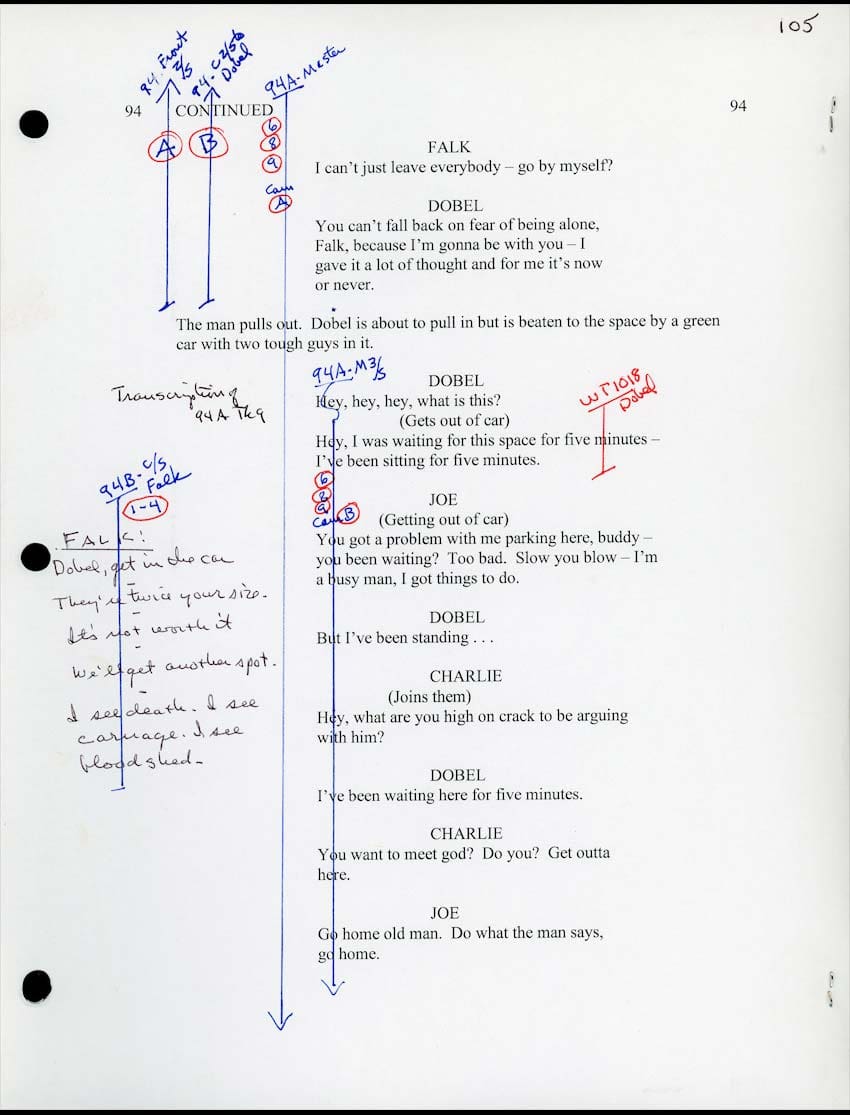 105
94. Front
2/S
94- C 2/S to
Dobel
94A-Master
94 CONTINUED 94
A B
6
8
9
Cam
A
FALK
I can’t just leave everybody – go by myself?
DOBEL
You can’t fall back on fear of being alone,
Falk, because I’m gonna be with you – I
gave it a lot of thought and for me it’s now
or never.
The man pulls out. Dobel is about to pull in but is beaten to the space by a green
car with two tough guys in it.
94A-M3/S
DOBEL
Hey, hey, hey, what is this?
(Gets out of car)
Hey, I was waiting for this space for five minutes –
I’ve been sitting for five minutes.
WT1018
Dobel
Transcription of
94A Tk9
6
8
9
Cam B
94B- C/S
Falk
1-4
JOE
(Getting out of car)
You got a problem with me parking here, buddy –
you been waiting? Too bad. Slow you blow – I’m
a busy man, I got things to do.
FALK:
Dobel, get in the car
They're twice your size.
It's not worth it
We'll get another spot.
I see death. I see
carnage. I see
bloodshed.
DOBEL
But I’ve been standing . . .
CHARLIE
(Joins them)
Hey, what are you high on crack to be arguing
with him?
DOBEL
I’ve been waiting here for five minutes.
CHARLIE
You want to meet god? Do you? Get outta
here.
JOE
Go home old man. Do what the man says,
go home.